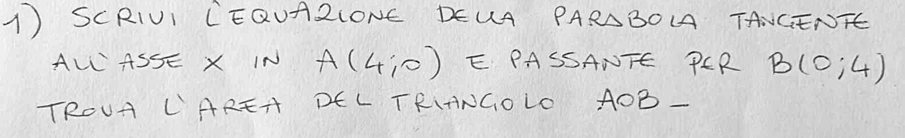 1) SCRIVI L'EQUAZIONE DELLA PARABOLA TANGENTE
ALL'ASSE X IN A(4;0) E PASSANTE PER B(0;4)
TROVA L'AREA DEL TRIANGOLO AOB -